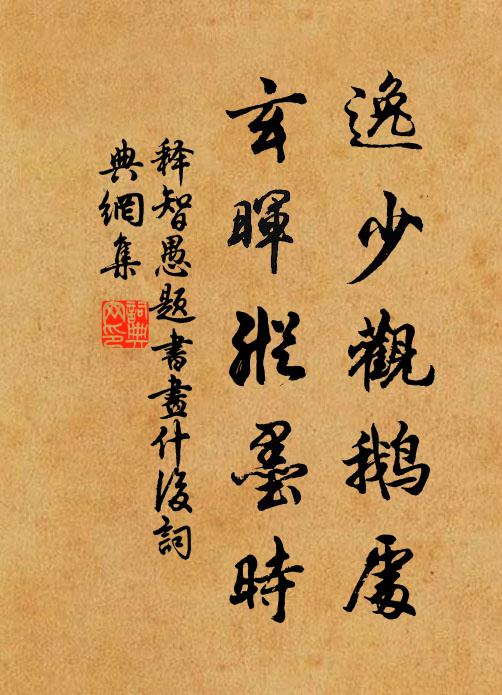 逸少觀鵝處
玄暉縱墨時
释智愚题書畫什後詞
典網集
詞典
网印